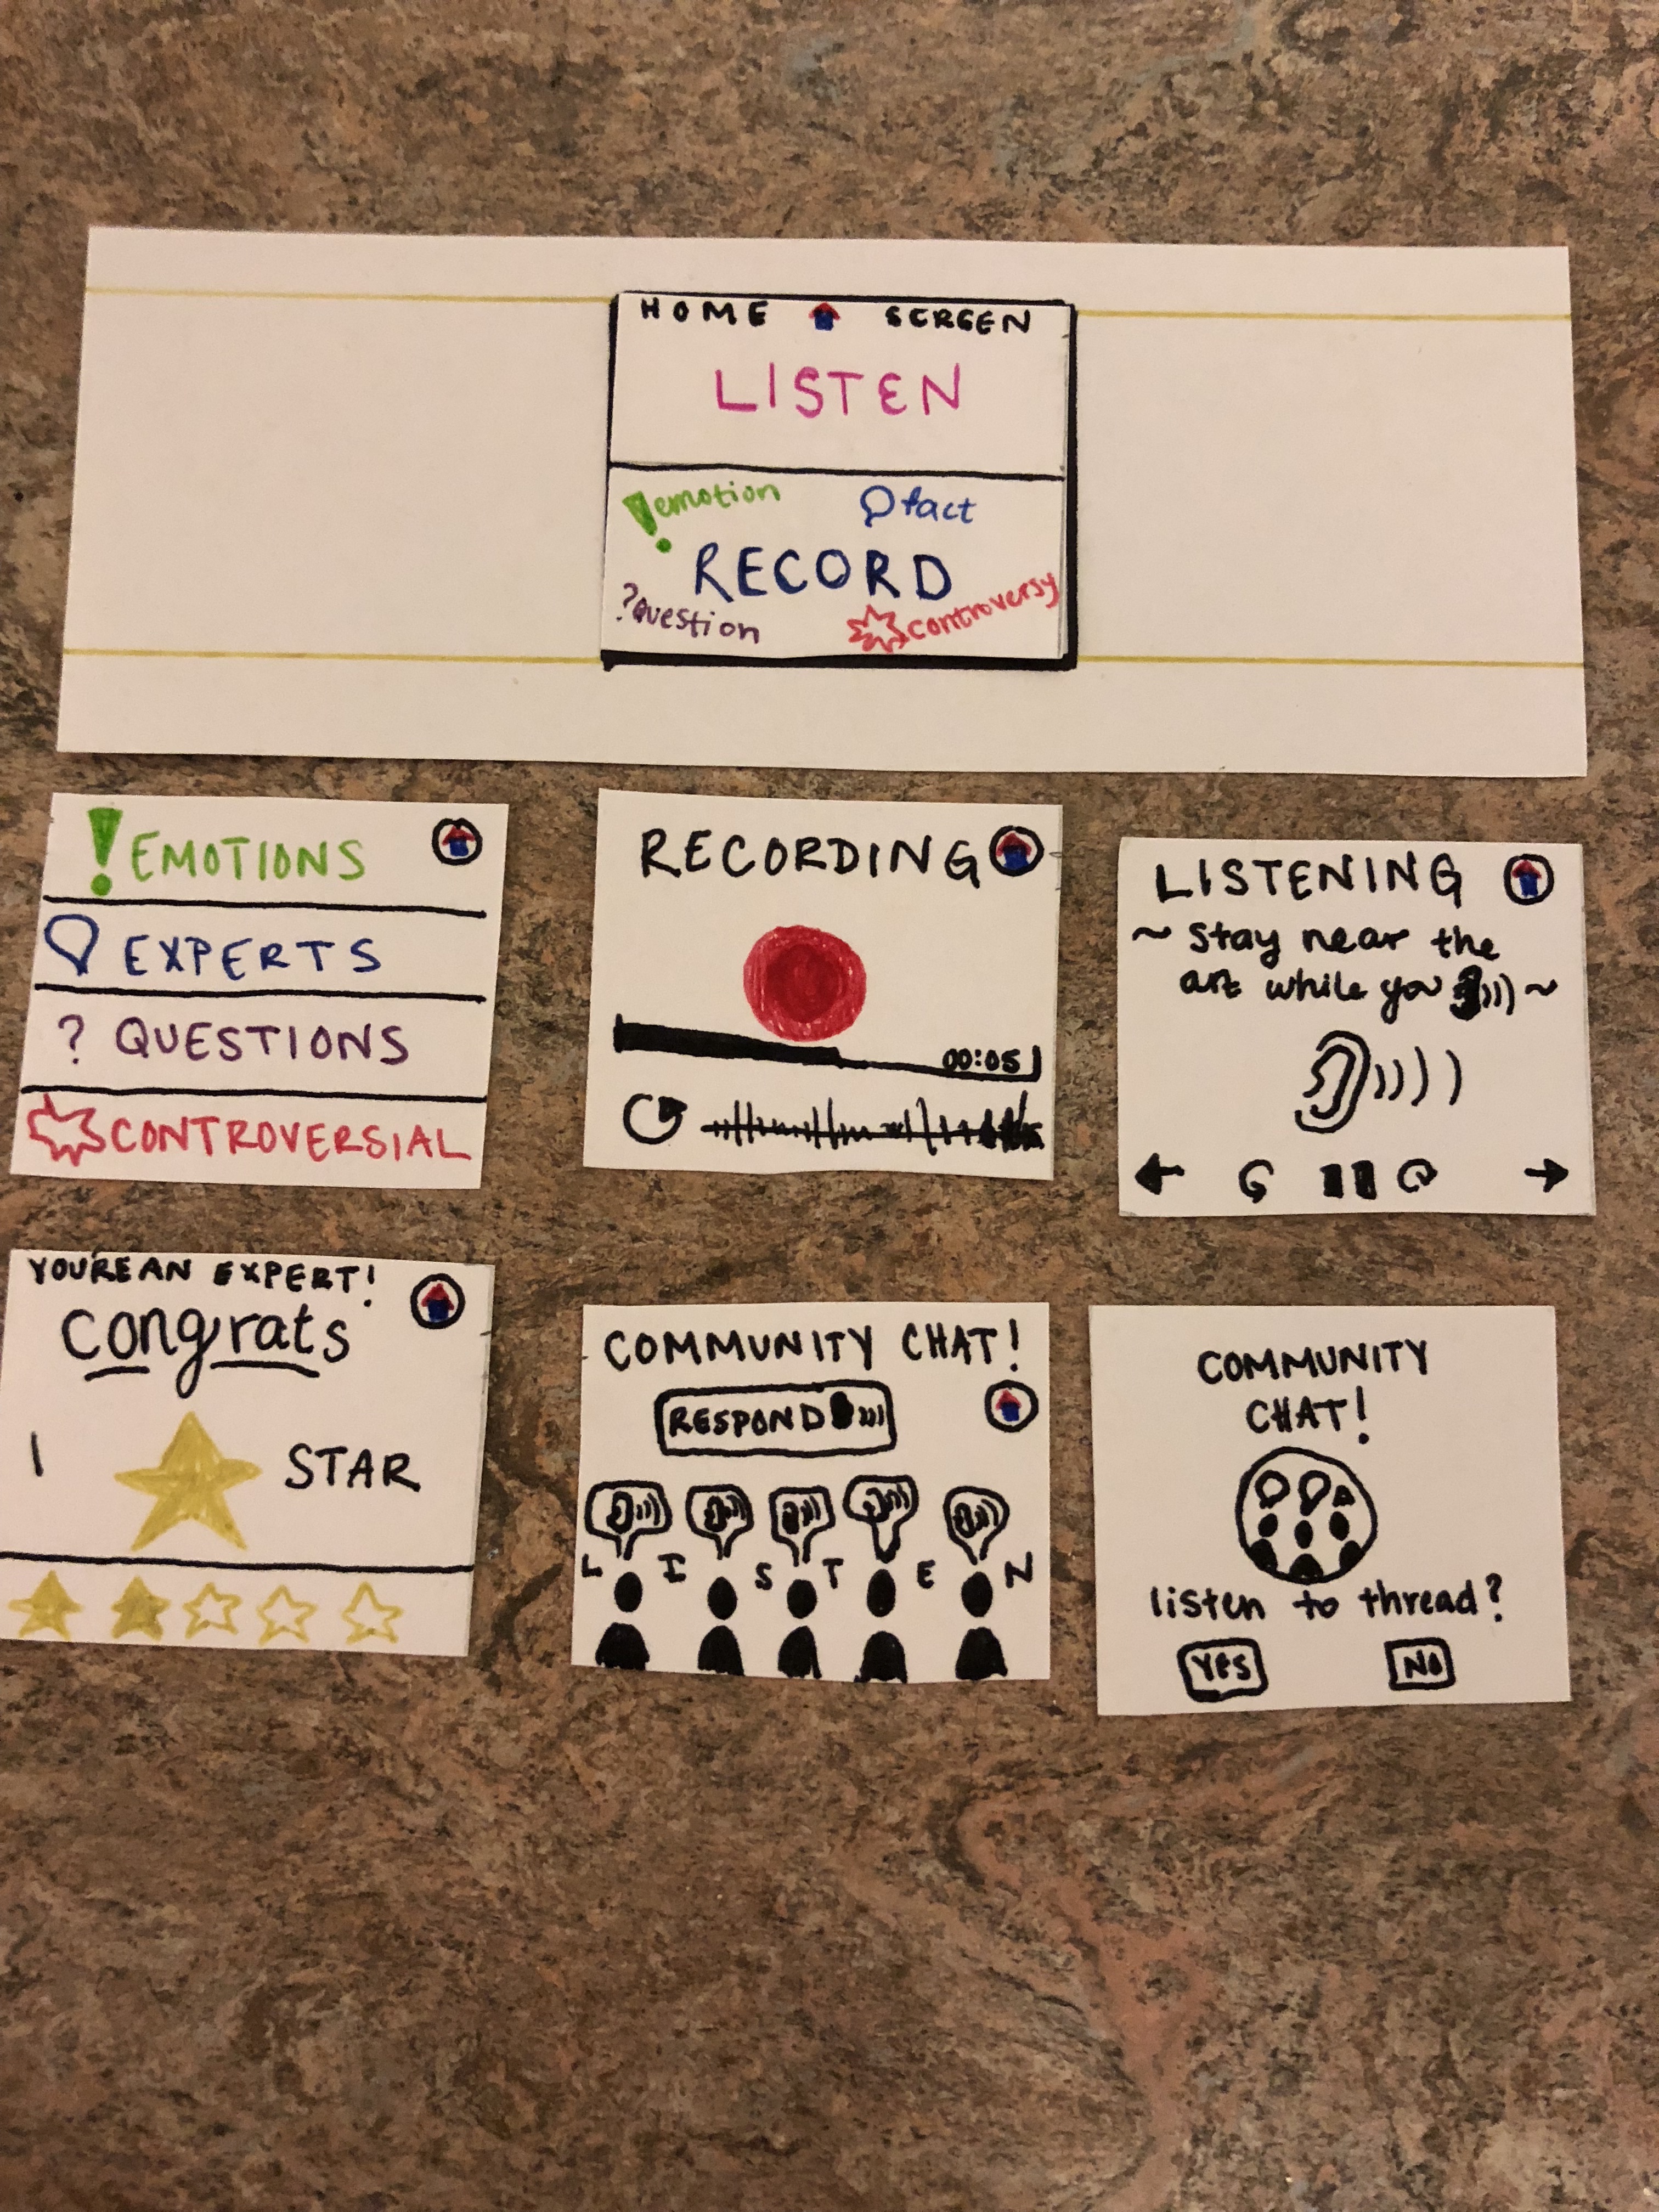 HOME SCREEN
LISTEN
! emotion fact
RECORD
? Question controversy
! EMOTIONS
EXPERTS
? QUESTIONS
CONTROVERSIAL
RECORDING
00:05
LISTENING
~ Stay near the
art while you ~
YOU'RE AN EXPERT!
Congrats
1 STAR
COMMUNITY CHAT!
RESPOND
L I S T E N
COMMUNITY
CHAT!
listen to thread?
YES NO